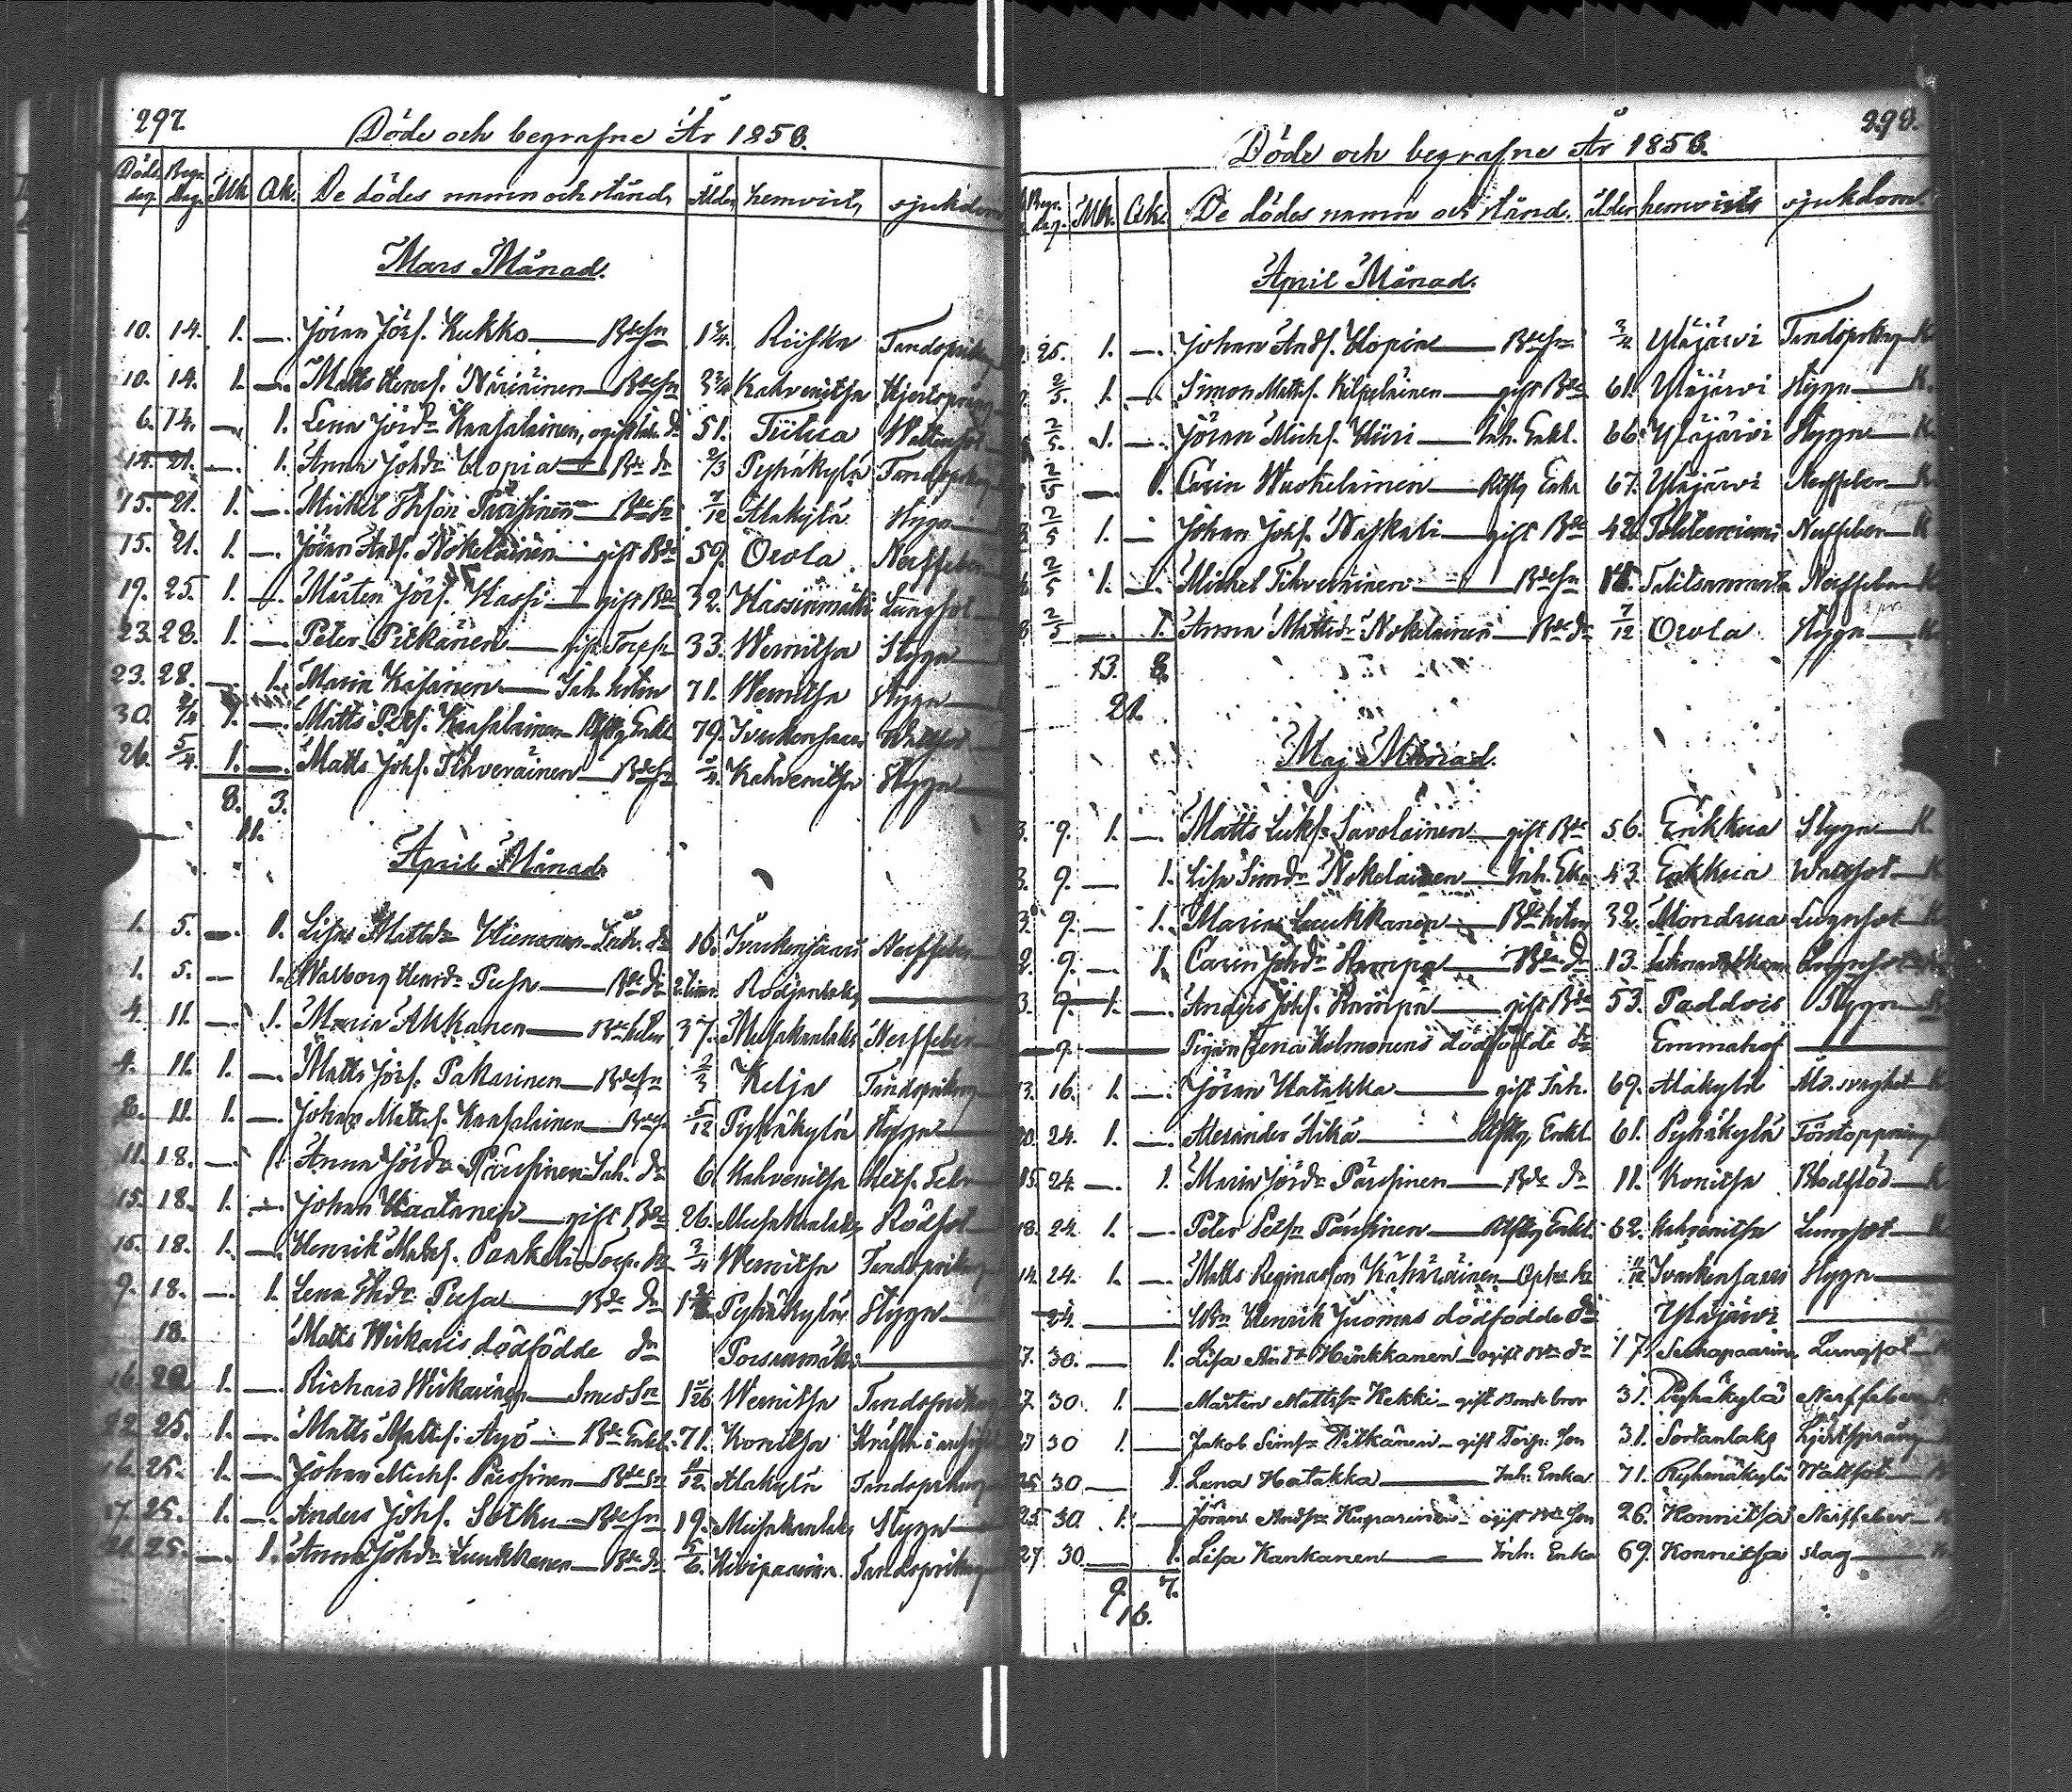 297.
Döde och begrafne År 1858.
Döds dag. Begr. dag. Mk. Qk. De dödes namn och stånd, Ålder hemvist, sjukdom
Mars Månad.
10. 14. 1. — Jöran Jörs. Kukko — Bdesn 1 Riiska Tandsprickn
10. 14. 1. — Matts Henrs. Närinen — Bdesn Kahvenitsa Hjertsprång
6. 14. — 1. Lena Jördr Kaasalainen, ogift dr 51. Tiitua Wattusot
14. 21. — 1. Anna Johdr Ulopia — Bde dr 2/3 Pyhäkylä Tandspkn
15. 21. 1. — Mickel Pärssinen — Bdesn 7/12 Alakylä Hygn
15. 21. 1. — Jöran Ands. Nokelainen — gift Bde 59. Orola Nerffeber
19. 25. 1. — Mårten Jörs. Hassi — gift Bde 32. Hassinmäki Lungsot
23. 28. 1. — Peter Pitkänen — gift Torpsn 33. Wernitsa Hygn
23. 28. — 1. Maria Kajanen — Inh. hstru 71. Wernitsa Hygn
30. 2/4 1. — Matts Petts. Kaasalainen Enkl 79. Ivaskensaari Wattsot
26. 5/4. 1. — Matts Johs. Tihveräinen — Bdesn 3/4. Kahvenitsa Hygn
8. 3.
11.
April Månad.
1. 5. — 1. Lisa Mattsdr Hienonen Inh. dr 16. Ivaskensaari Nerffeber
1. 5. — 1. Walborg Henrdr Pusa — Bde dr 2 tim. Rödjanlaks —
4. 11. — 1. Maria Akkanen — Bde hstru 37. Musakanlaks Nerffeber
4. 11. 1. — Matts Jörs. Pakarinen — Bdesn 2/3 Kelja Tandsprikng
8. 11. 1. — Johan Matts. Kaasalainen — Bdes. 5/12 Pyhäkylä Hygn
11. 18. — 1. Anna Jördr Pärssinen Inh. dr 6. Kahvenitsa Hets. Feb
15. 18. 1. — Johan Haatanen — gift Bde 26. Musakanlaks Rödsot
15. 18. 1. — Henrik Matts. Paukeli Torp. sn 3/4 Wernitsa Tandsprikng
9. 18. — 1. Lena Pusa — Bde dr Pyhäkylä Hygn
18. Matts Wirkaris dödfödde dr Porsinmäki —
16. 20 1. — Richard Wirkarinen — Smeds Sn 1/26 Wernitsa Tandsprikng
22. 25. 1. — Matts Matts. Äyö — Bde Enkl. 71. Konitsa Kräfta i ansigtet
16. 25. 1. — Johan Michs. Pärssinen — Bdesn 11/12 Alakylä Tandsprikng
17. 25. 1. — Anders Johs. Sotku — Bdesn 19. Musakanlaks Hygn
21. 25. — 1. Anna Johdr Luukkanen — Bde dr 5/6. Kivipaarina Tandsprikng
298.
Döde och begrafne År 1858.
Begr. dag. Mk. Qk. De dödes namn och stånd. ålder hemvist sjukdom
April Månad.
25. 1. — Johan Ands. Ulopia — Bdesn 3/4 Yläjärvi Tandsprikng K
2/5. 1. — Simon Matts. Kilpeläinen — gift Bde 61. Yläjärvi Hygn — K.
2/5. 1. — Jöran Michs. Hiiri — Inh. Enkl. 66. Yläjärvi Hygn — K.
2/5 — 1. Carin Waskelainen — Enka 67. Yläjärvi Nerffeber — K
2/5 1. — Johan Johs. Naskali — gift Bde 42. Nerffeber — K
2/5 1. — Michel Tihveräinen — Bdesn Nerffeber — K
2/5 — 1. Anna Mattsdr Nokelainen — Bde dr 7/12 Orola Hygn — K
13. 8.
21.
Maj Månad.
3. 9. 1. — Matts Luks. Savolainen — gift Bde 56. Erikkua Hygn — K.
3. 9. — 1. Lisa Simdr Nokelainen — Inh. Eka 43. Erikkua Wattsot — K
3. 9. — 1. Maria Luukkanen — Bde hstru 32. Mondrua Lungsot K
2. 9. — 1. Carin Johdr Hampa — Bde dr 13. Lungsot
3. 9. 1. — Anders Johs. Hämpä — gift Bde 53. Paddois Hygn — K
9. — Pigan Lena Holmonens dödfödde dr Emmahof —
13. 16. 1. — Jöran Hatakka — gift Inh. 69. Alakylä Åld. svaghet K
20. 24. 1. — Alexander Äikä — Enkl. 61. Pyhäkylä Förstoppning
15. 24. — 1. Maria Jördr Pärssinen — Bde dr 11. Konitsa Blodflöd — K
18. 24. 1. — Peter Petsn Pärssinen — Enkl. 62. Kahvenitsa Lungsot — K
14. 24. 1. — Matts Reginasson Kähäräinen — sn Ivaskensaari Hygn —
24. — Henrik Juomas dödfödde dr Yläjärvi —
17. 30. — 1. Lisa Andr Hinkkanen — ogift dr 17. Seckapaarina Lungsot K
27. 30. 1. — Mårten Mattssn Kekki — gift Bonde bror 31. Pyhäkylä Nerffeber
27 30 1. — Jakob Simsn Pitkänen — gift Torp. Son 31. Sortanlaks Hjertsprång
25 30. — 1. Lena Hatakka — Inh. Enka 71. Ryhmäkylä Wattsot
25 30. 1. — Jöran Andsn Kuparinen — ogift Son 26. Konnitsa Nerffeber
27. 30. — 1. Lisa Kankanen — Inh. Enka 69. Konnitsa slag —
9. 7.
16.